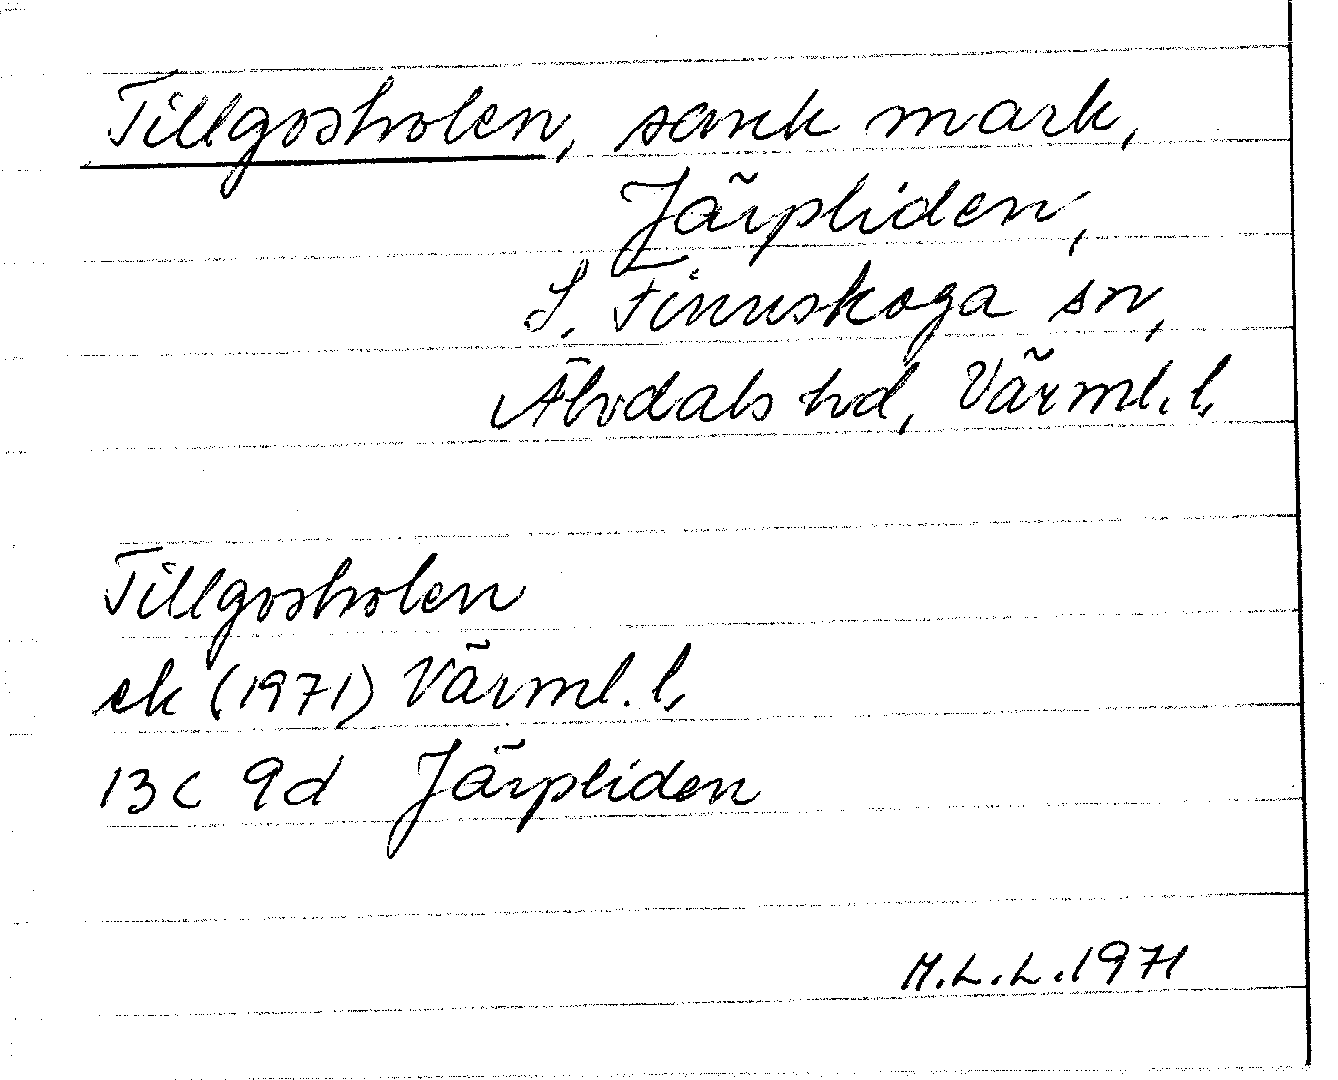 Tillgosholen, sank mark,
Järpliden,
S. Finnskoga sn,
Älvdals hd, Värml. l.
Tillgosholen
ek (1971) Värml. l.
13C 9d Järpliden
M.L.L. 1971